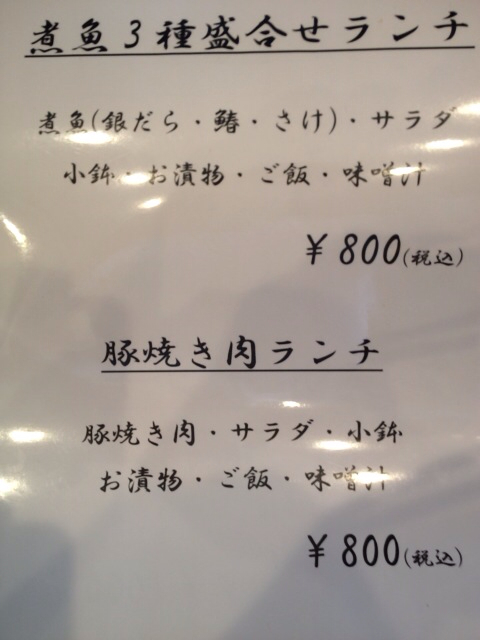 煮魚3種盛合せランチ
煮魚(銀だら・鰆・さけ)・サラダ
小鉢・お漬物・ご飯・味噌汁
¥800(税込)
豚焼き肉ランチ
豚焼き肉・サラダ・小鉢
お漬物・ご飯・味噌汁
¥800(税込)